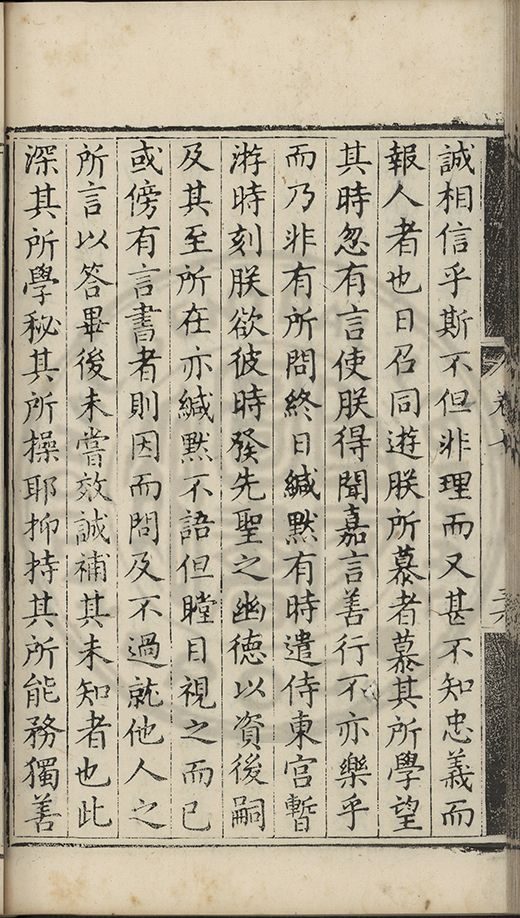 誠相信乎斯不但非理而又甚不知忠義而
報人者也日召同遊朕所慕者慕其所學望
其時忽有言使朕得聞嘉言善行不亦樂乎
而乃非有所問終日緘默有時遣侍東宮暫
游時刻朕欲彼時發先聖之幽德以資後嗣
及其至所在亦緘默不語但瞠目視之而已
或傍有言書者則因而問及不過就他人之
所言以答畢後未嘗效誠補其未知者也此
深其所學秘其所操耶抑持其所能務獨善
卷七